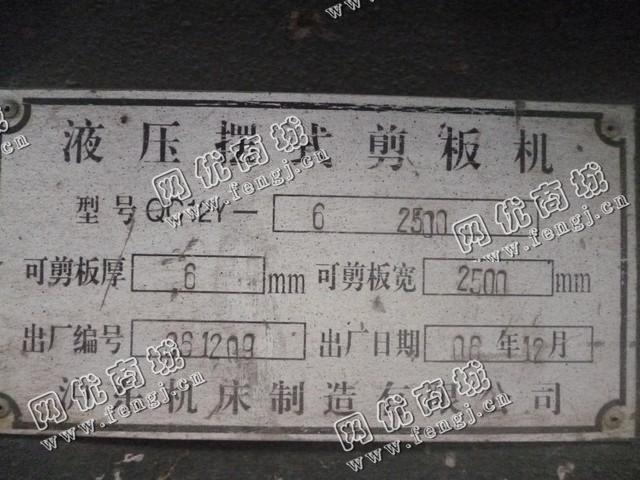 液压摆式剪板机
型号 QC12Y— 6 2500
可剪板厚 6 mm 可剪板宽 2500 mm
出厂编号 061209 出厂日期 06年12月
机床制造有限公司
网优商城
www.fengj.cn
网优商城
www.fengj.cn
网优商城
www.fengj.cn
网优商城
www.fengj.cn
网优商城
www.fengj.cn